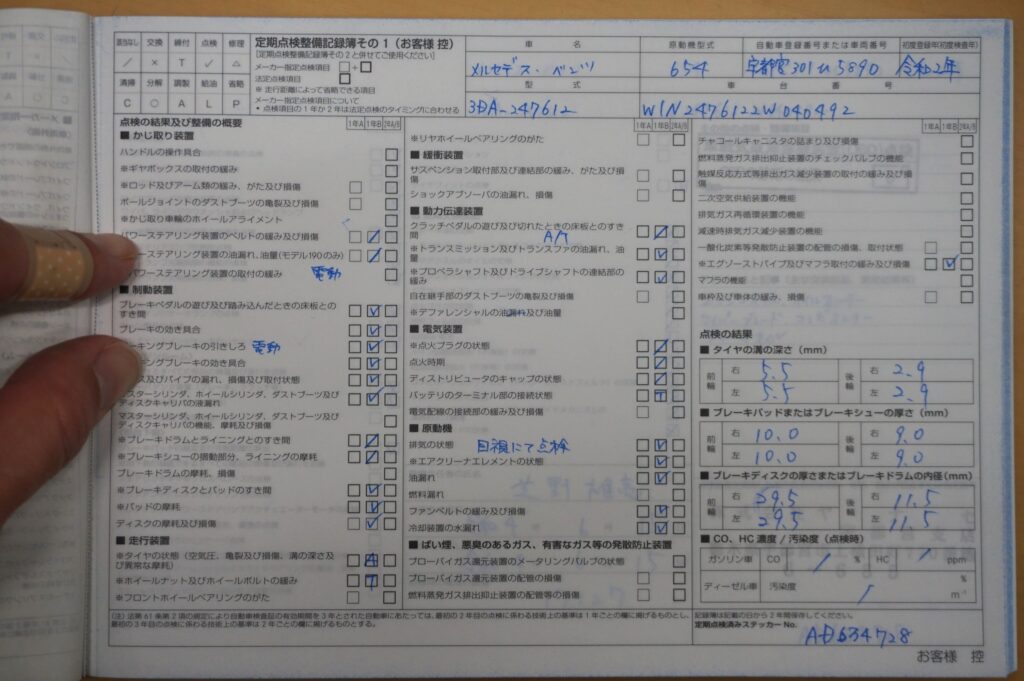 該当なし 交換 締付 点検 修理
／ × T ✓ △
清掃 分解 調製 給油 省略
C ○ A L P
定期点検整備記録簿その1（お客様 控）
[定期点検整備記録簿その2と併せてご使用ください]
メーカー指定点検項目 □+□
法定点検項目 □
※ 走行距離によって省略できる項目
メーカー指定点検項目について
・点検項目の1年か2年は法定点検のタイミングに合わせる
車名
メルセデス・ベンツ
原動機型式
654
自動車登録番号または車両番号
初度登録年(初度検査年)
令和2年
型式
3DA-247612
車台番号
W1N2476122W040492
点検の結果及び整備の概要
1年A 1年B 2年A/B
■ かじ取り装置
ハンドルの操作具合
※ギヤボックスの取付の緩み
※ロッド及アーム類の緩み、がた及び損傷
ボールジョイントのダストブーツの亀裂及び損傷
※かじ取り車輪のホイールアライメント
パワーステアリング装置のベルトの緩み及び損傷
ーステアリング装置の油漏れ、油量(モデル190のみ)
パワーステアリング装置の取付の緩み 電動
■ 制動装置
ブレーキペダルの遊び及び踏み込んだときの床板とのすき間
ブレーキの効き具合
ーキングブレーキの引きしろ 電動
ーキングブレーキの効き具合
ス及びパイプの漏れ、損傷及び取付状態
マスターシリンダ、ホイールシリンダ、ダストブーツ及びディスクキャリパの液漏れ
マスターシリンダ、ホイールシリンダ、ダストブーツ及びディスクキャリパの機能、摩耗及び損傷
※ブレーキドラムとライニングとのすき間
※ブレーキシューの摺動部分、ライニングの摩耗
ブレーキドラムの摩耗、損傷
※ブレーキディスクとパッドのすき間
※パッドの摩耗
ディスクの摩耗及び損傷
■ 走行装置
※タイヤの状態（空気圧、亀裂及び損傷、溝の深さ及び異常な摩耗） A
※ホイールナット及びホイールボルトの緩み T
※フロントホイールベアリングのがた
1年A 1年B 2年A/B
※リヤホイールベアリングのがた
■ 緩衝装置
サスペンション取付部及び連結部の緩み、がた及び損傷
ショックアブソーバの油漏れ、損傷
■ 動力伝達装置
クラッチペダルの遊び及び切れたときの床板とのすき間 A/T
※トランスミッション及びトランスファの油漏れ、油量
※プロペラシャフト及びドライブシャフトの連結部の緩み
自在継手部のダストブーツの亀裂及び損傷
※デファレンシャルの油漏れ及び油量
■ 電気装置
※点火プラグの状態
点火時期
ディストリビュータのキャップの状態
バッテリのターミナル部の接続状態 T
電気配線の接続部の緩み及び損傷
■ 原動機
排気の状態 目視にて点検
※エアクリーナエレメントの状態
油漏れ
燃料漏れ
ファンベルトの緩み及び損傷
冷却装置の水漏れ
■ ばい煙、悪臭のあるガス、有害なガス等の発散防止装置
ブローバイガス還元装置のメータリングバルブの状態
ブローバイガス還元装置の配管の損傷
燃料蒸発ガス排出抑止装置の配管等の損傷
1年A 1年B 2年A/B
チャコールキャニスタの詰まり及び損傷
燃料蒸発ガス排出抑止装置のチェックバルブの機能
触媒反応方式等排出ガス減少装置の取付の緩み及び損傷
二次空気供給装置の機能
排気ガス再循環装置の機能
減速時排気ガス減少装置の機能
一酸化炭素等発散防止装置の配管の損傷、取付状態
※エグゾーストパイプ及びマフラ取付の緩み及び損傷
マフラの機能
車枠及び車体の緩み、損傷
点検の結果
■ タイヤの溝の深さ（mm）
前輪 右 5.5 後輪 右 2.9
左 5.5 左 2.9
■ ブレーキパッドまたはブレーキシューの厚さ（mm）
前輪 右 10.0 後輪 右 9.0
左 10.0 左 9.0
■ ブレーキディスクの厚さまたはブレーキドラムの内径（mm）
前輪 右 29.5 後輪 右 11.5
左 29.5 左 11.5
■ CO、HC 濃度 / 汚染度（点検時）
ガソリン車 CO ／ % HC ／ ppm
ディーゼル車 汚染度 ／ % m⁻¹
(注) 法第61条第2項の規定により自動車検査証の有効期間を3年とされた自動車にあたっては、最初の2年目の点検に係わる技術上の基準は1年ごとの欄に掲げるものとし、最初の3年目の点検に係わる技術上の基準は2年ごとの欄に掲げるものとする。
記録簿は記載の日から2年間保存してください。
定期点検済みステッカー No.
お客様 控